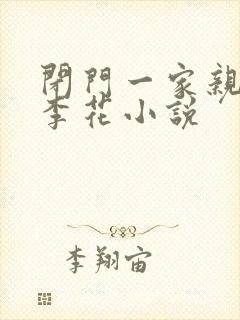 閉門一家親
李花小說
李翔宙